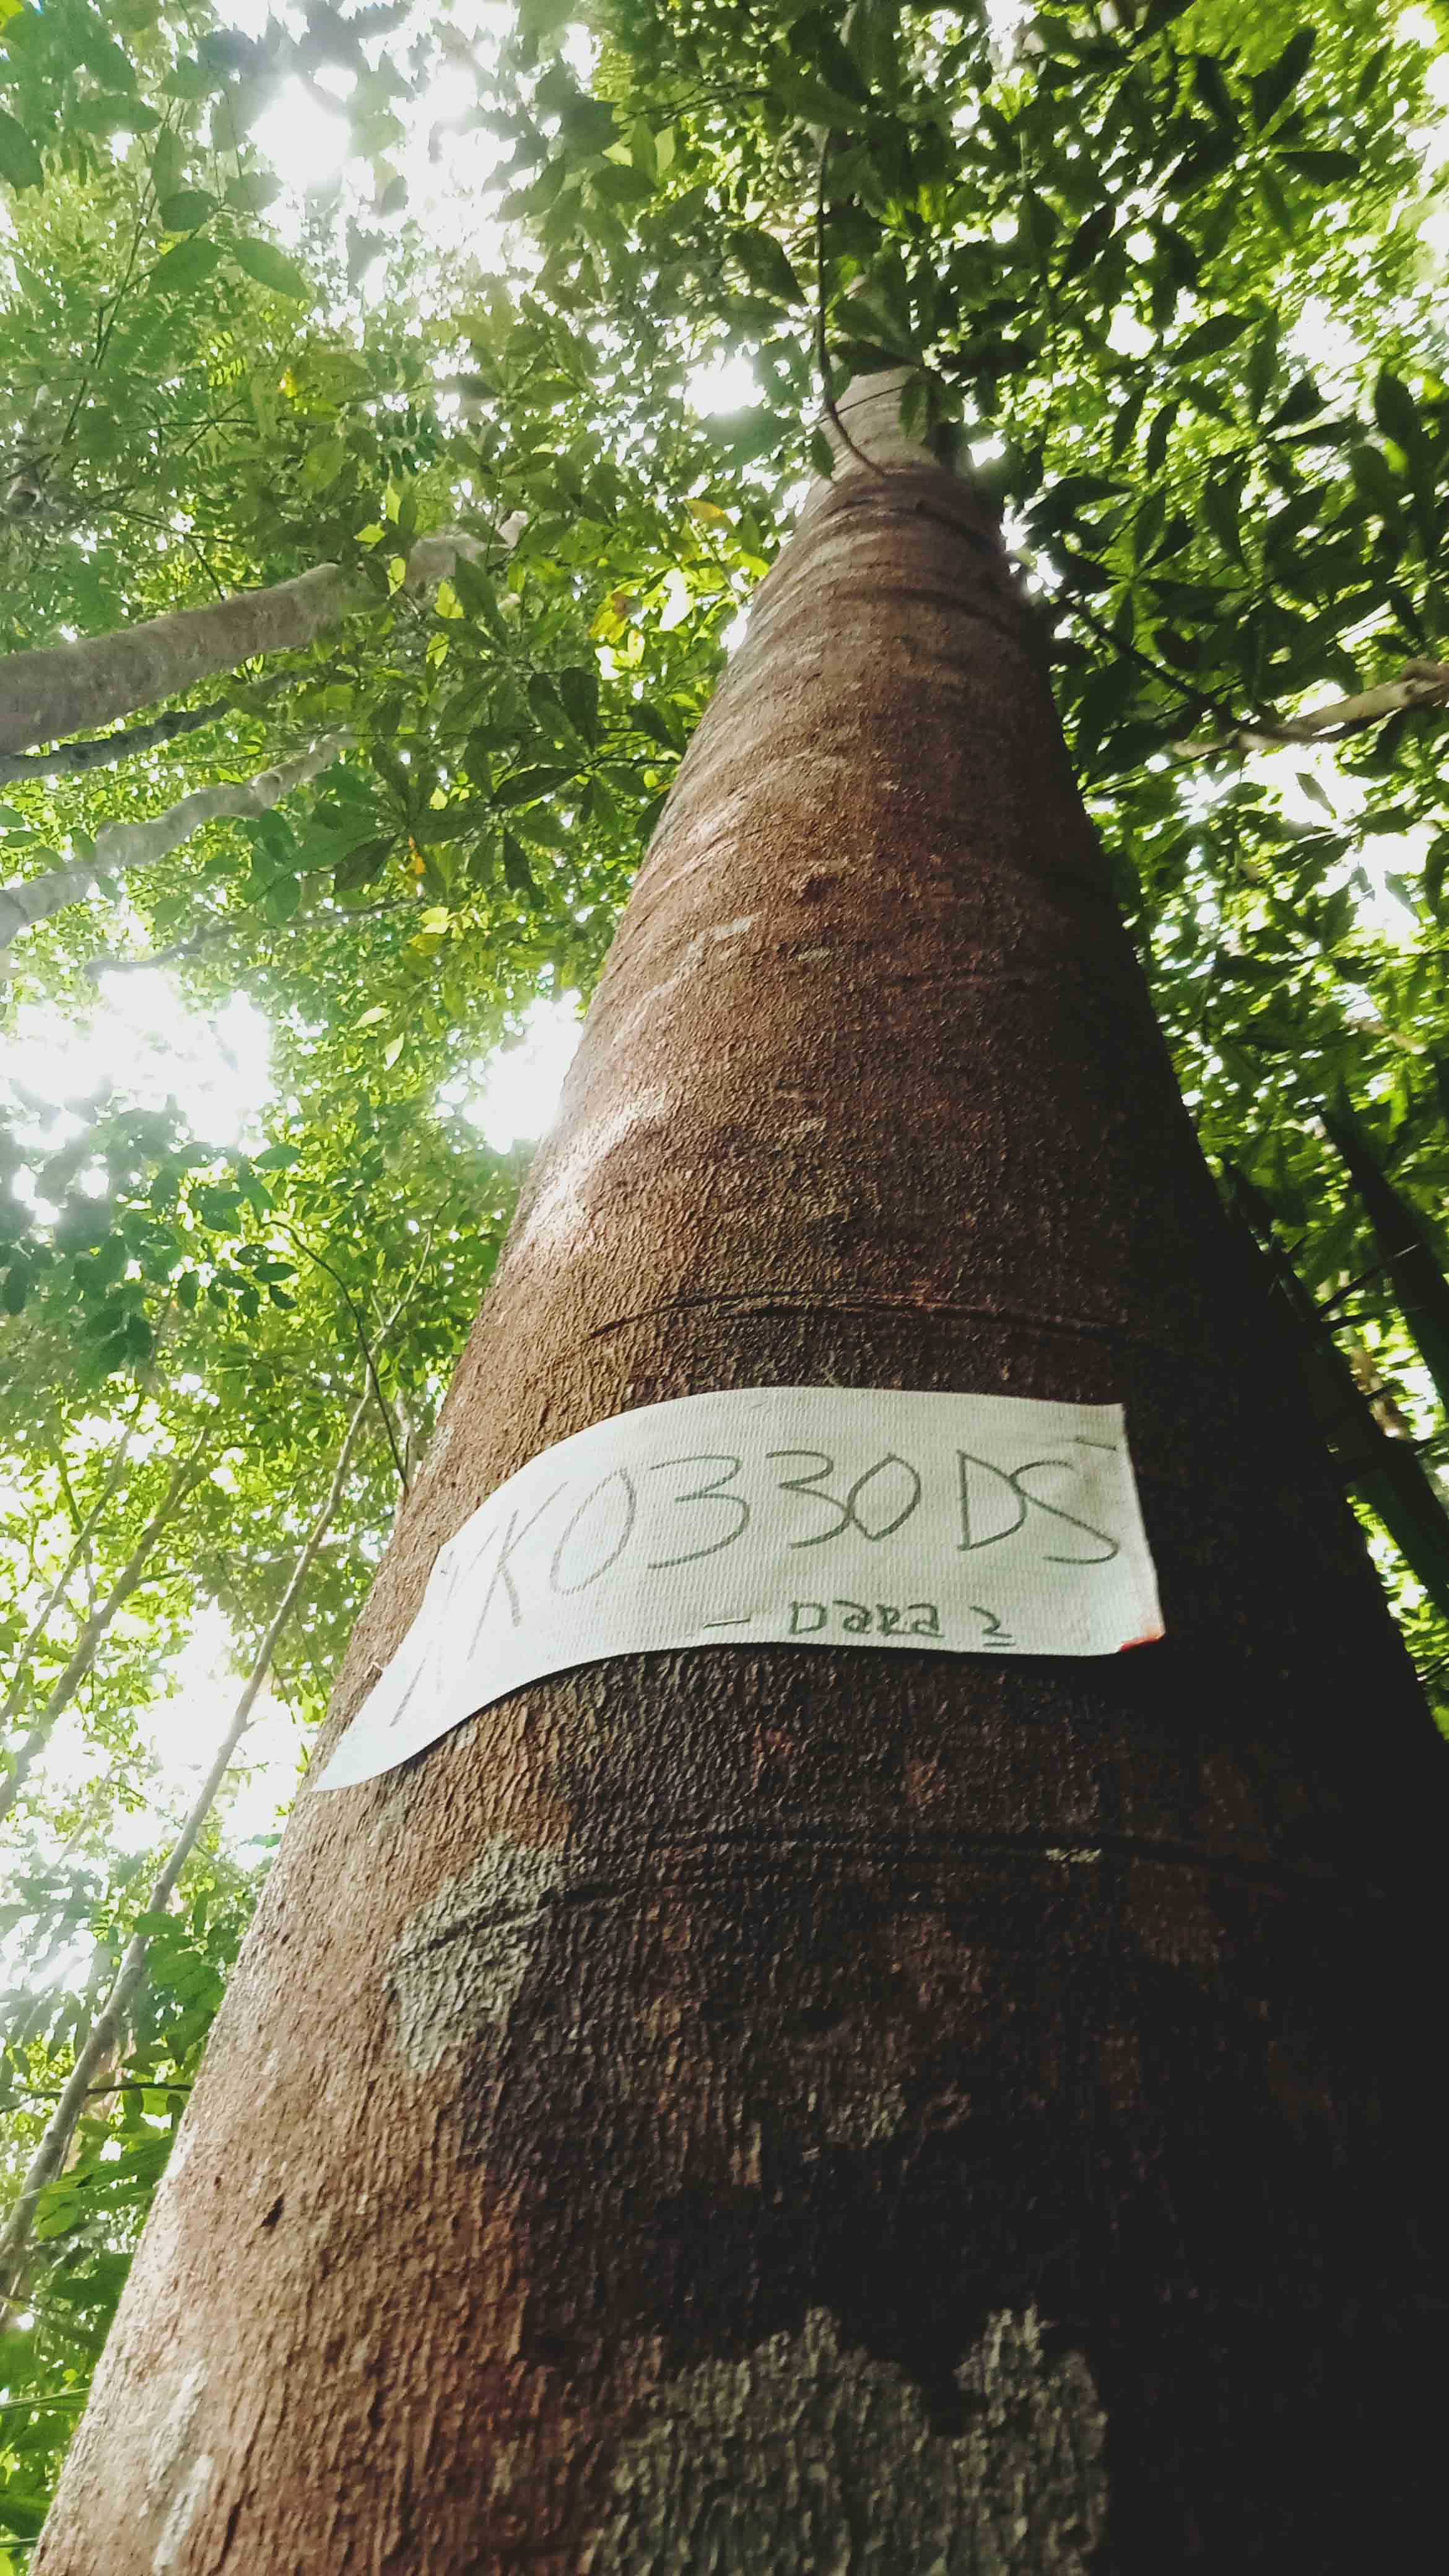 KK0330DS
- Dara 2